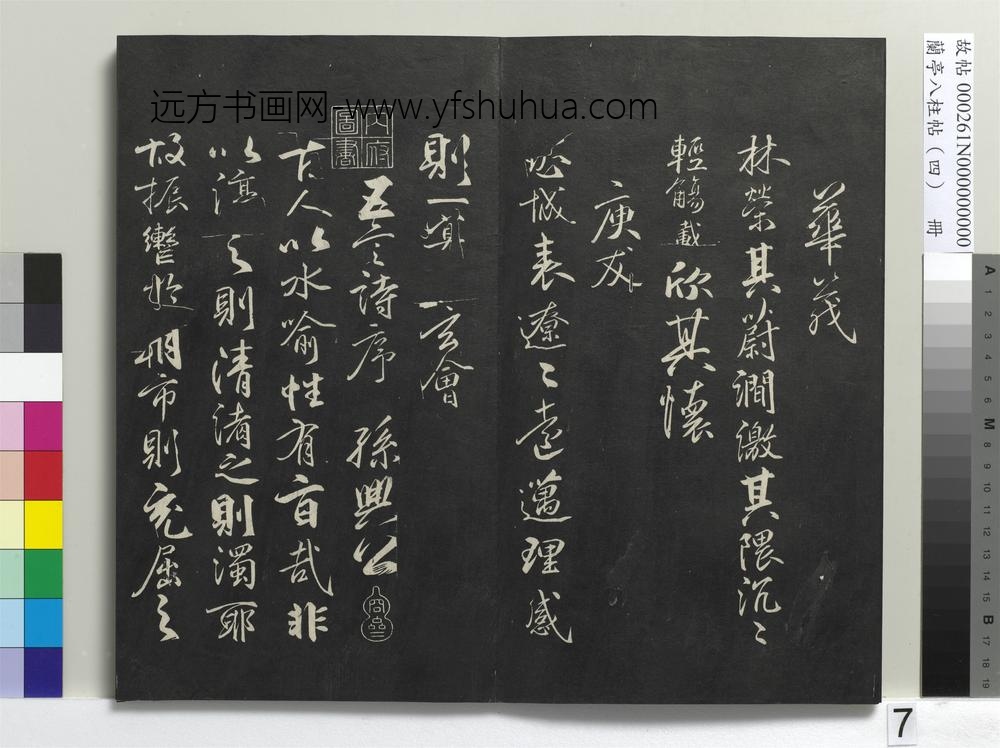 故帖 000261N000000000
蘭亭八柱帖（四） 冊
远方书画网 www.yfshuhua.com
華茂
林榮其蔚澗激其隈沉〻
輕觴載欣其懷
庚友
域表遼〻遠邁理感
則一冥 玄會
內府圖書
五言詩序 孫興公
古人以水喻性有旨哉非
以渟之則清渚之則濁耶
故振轡於朝市則充屈之
7
A 1 2 3 4 5 6 M 8 9 10 11 12 13 14 15 B 17 18 19